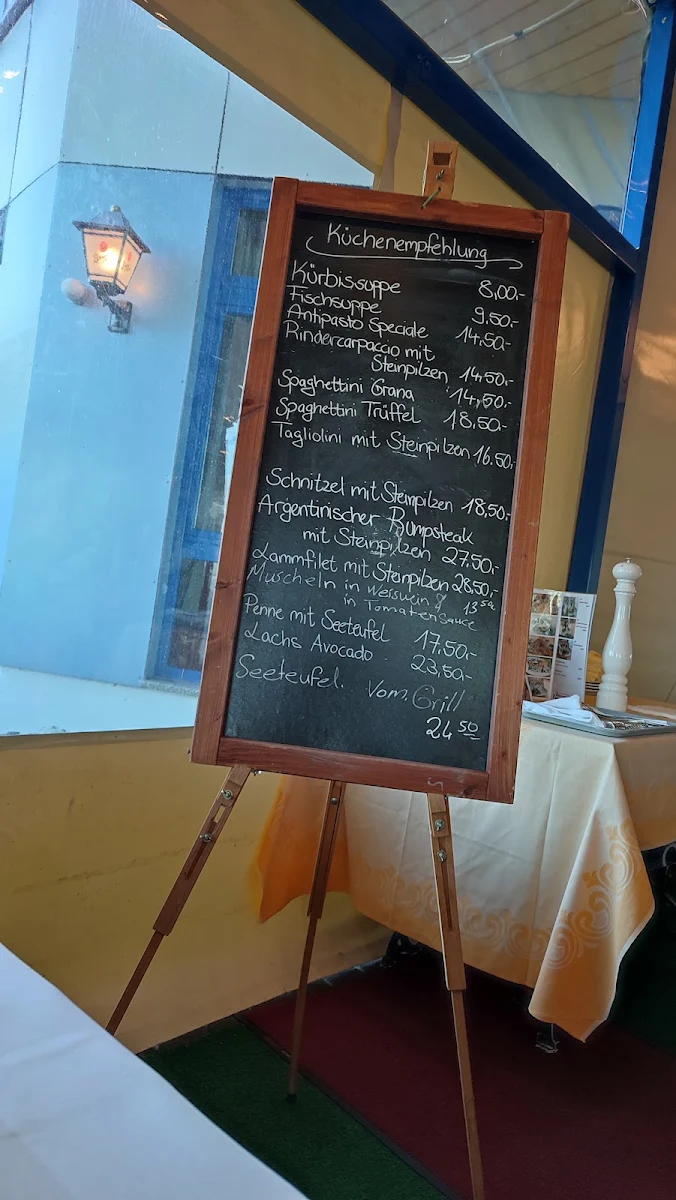 Küchenempfehlung
Kürbissuppe 8,00.-
Fischsuppe 9,50.-
Antipasto Speciale 14,50.-
Rindercarpaccio mit
Steinpilzen 14,50.-
Spaghettini Grana 14,50.-
Spaghettini Trüffel 18,50.-
Tagliolini mit Steinpilzen 16.50.-
Schnitzel mit Steinpilzen 18,50.-
Argentinischer Rumpsteak
mit Steinpilzen 27,50.-
Lammfilet mit Steinpilzen 28,50.-
Muscheln in Weiswein &
in Tomatensauce 13 50
Penne mit Seeteufel 17,50.-
Lachs Avocado 23,50.-
Seeteufel. Vom. Grill
24 50